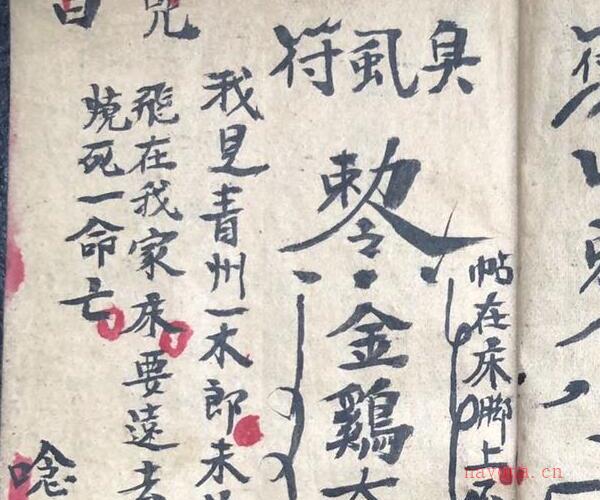 臭虱符
帖在床脚上
勅令金鷄大
我見青州一木郎未
飛在我家床要遠
燒死一命亡
唸
nayona.cn